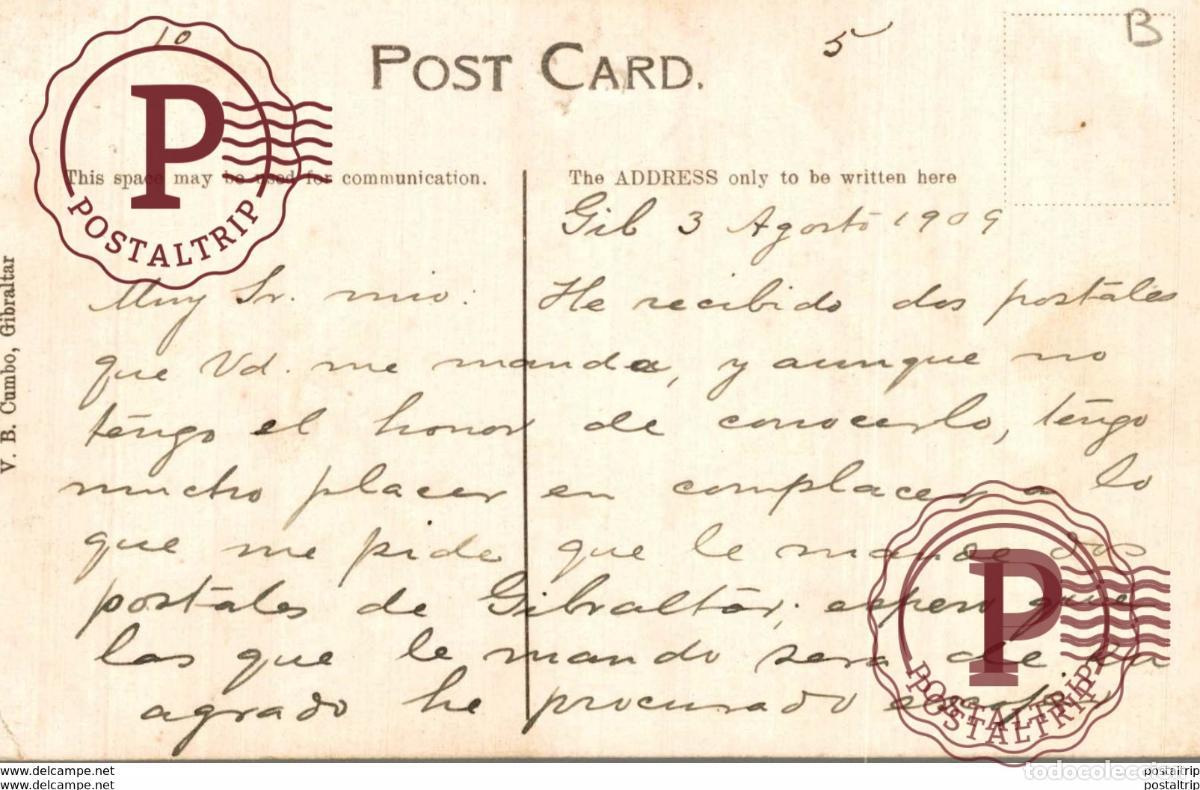 10
5
B
POST CARD.
This space may be used for communication.
The ADDRESS only to be written here
Gib 3 Agosto 1909
Muy Sr. mio: He recibido dos postales
que Vd. me manda, y aunque no
tengo el honor de conocerlo, tengo
mucho placer en complacer a lo
que me pide que le mande dos
postales de Gibraltar; espero que
las que le mando sera de su
agrado he procurado
V. B. Cumbo, Gibraltar
P
POSTALTRIP
P
POSTALTRIP
POSTALTRIP
todocoleccion
www.delcampe.net
postaltrip
www.delcampe.net
postaltrip